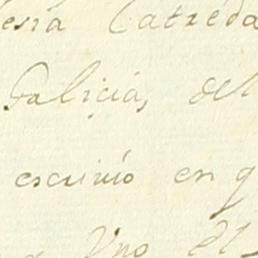 esia Catreda
Galicia, del
escriuió en q
Vno del